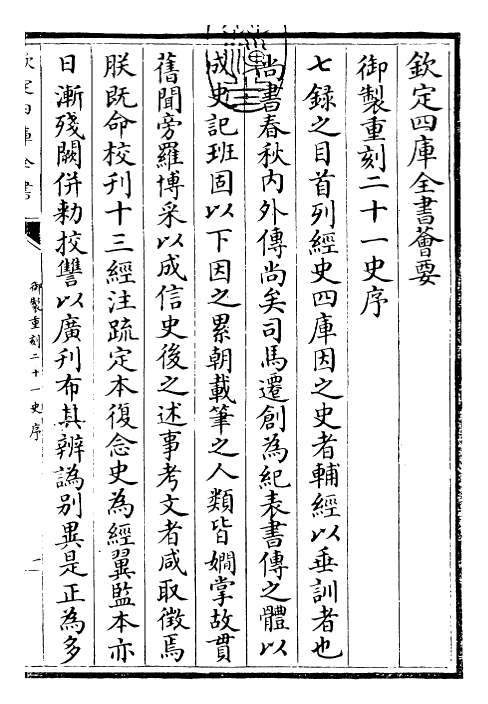 欽定四庫全書薈要
御製重刻二十一史序
七錄之目首列經史四庫因之史者輔經以垂訓者也
尚書春秋內外傳尚矣司馬遷創為紀表書傳之體以
成史記班固以下因之累朝載筆之人類皆嫺掌故貫
舊聞旁羅博采以成信史後之述事考文者咸取徵焉
朕既命校刊十三經注疏定本復念史為經翼監本亦
日漸殘闕併勅挍讐以廣刊布其辨譌別異是正為多
欽定四庫全書
御製重刻二十一史序
一